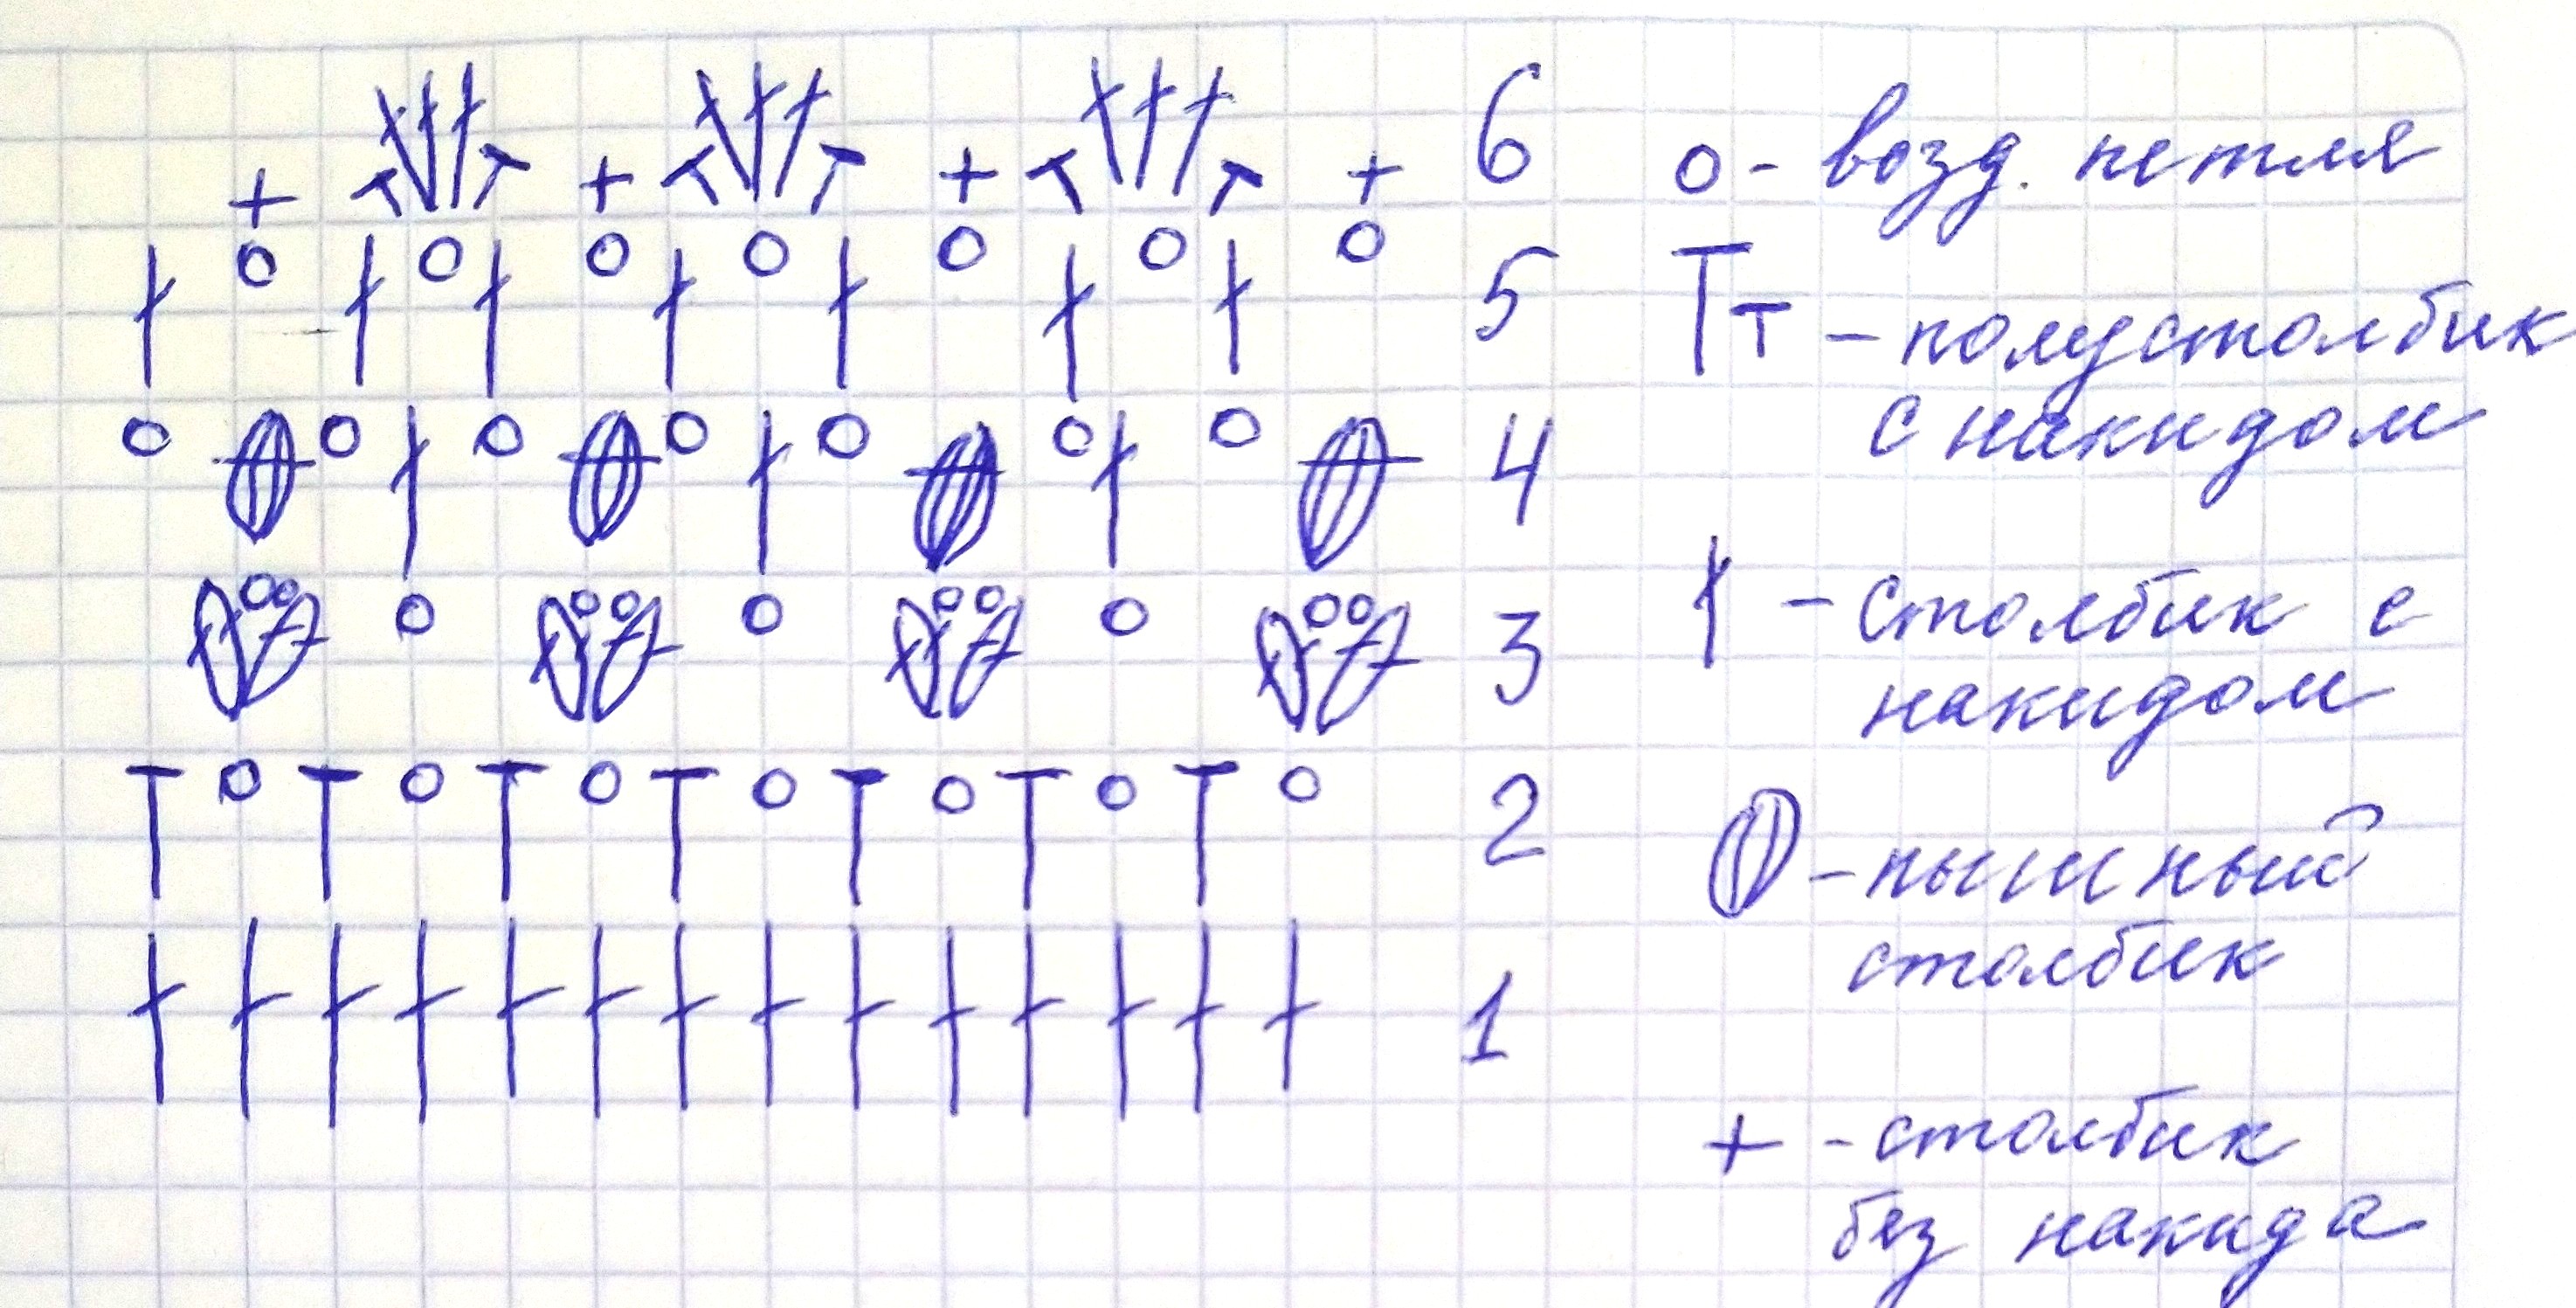 6
5
4
3
2
1
o - возд. петля
Тт - полустолбик
с накидом
- столбик с
накидом
- пышный
столбик
+ - столбик
без накида